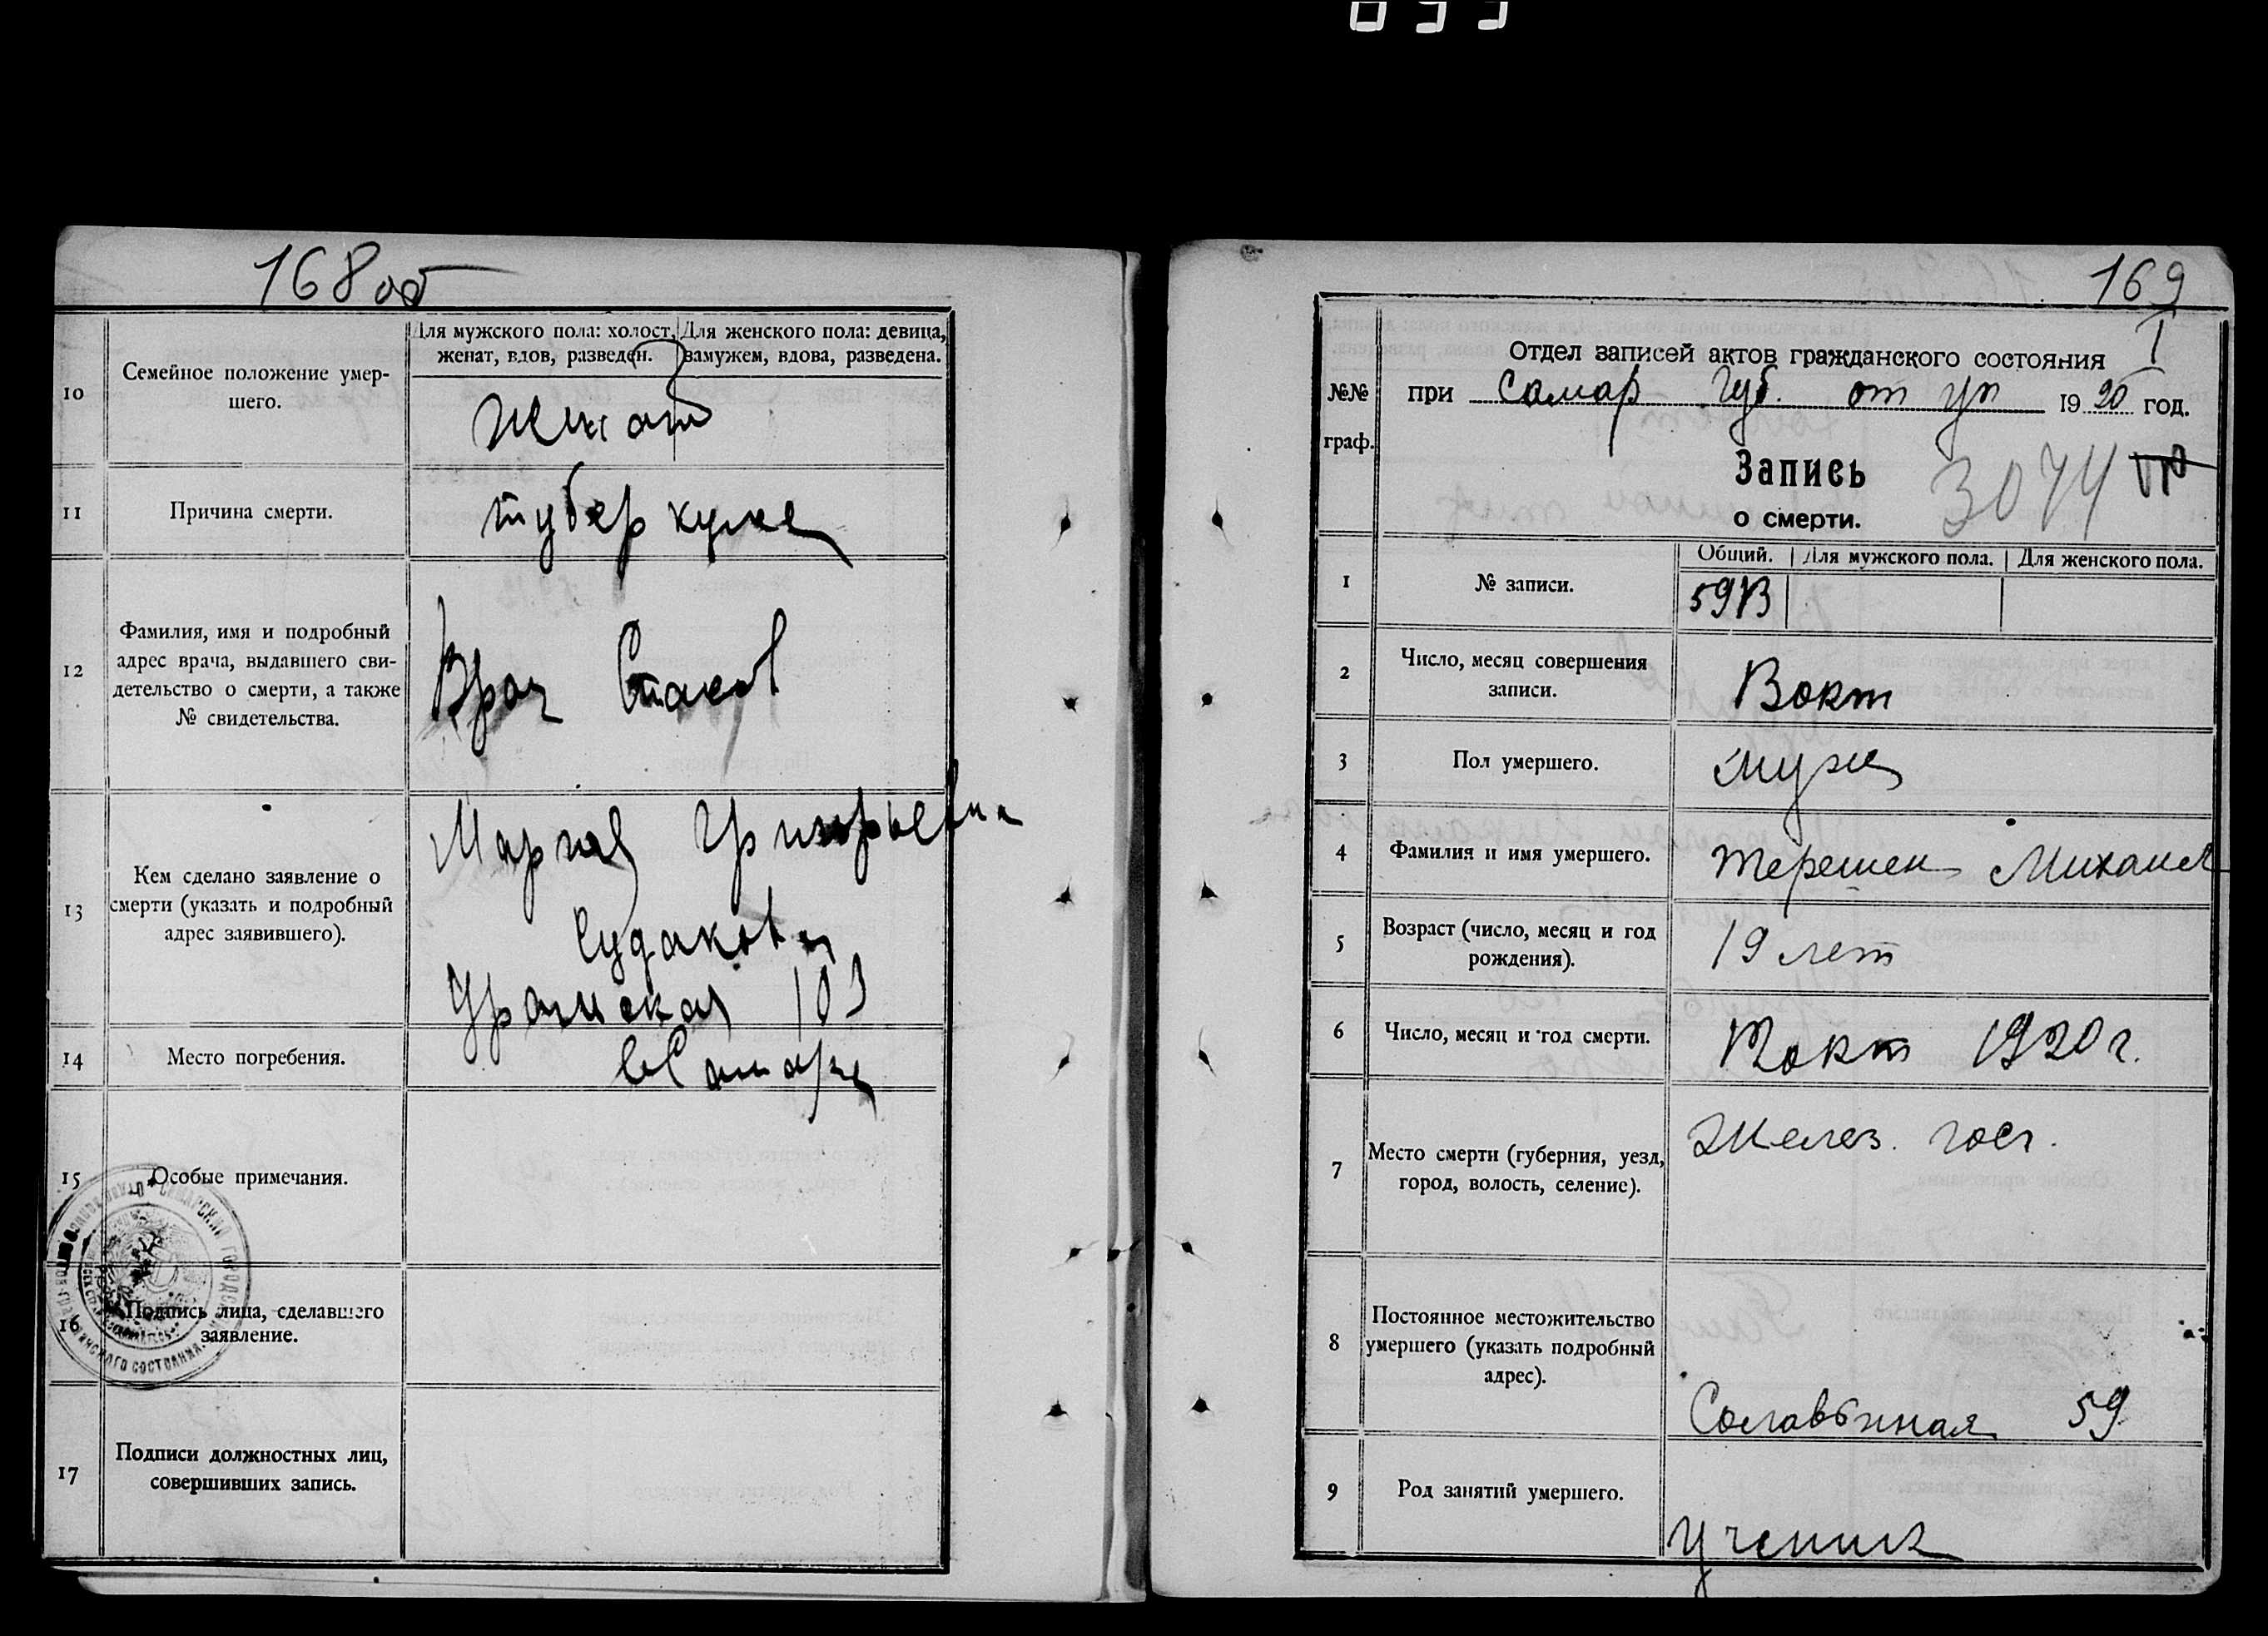 168 об
10
Семейное положение умер-
шего.
Для мужского пола: холост,
женат, вдов, разведен.
Для женского пола: девица,
замужем, вдова, разведена.
женат
11
Причина смерти.
туберкулез
12
Фамилия, имя и подробный
адрес врача, выдавшего сви-
детельство о смерти, а также
№ свидетельства.
Врач
13
Кем сделано заявление о
смерти (указать и подробный
адрес заявившего).
Мария Григорьевна
Судакова
103
14
Место погребения.
в Самаре
15
Особые примечания.
16
Подпись лица, сделавшего
заявление.
17
Подписи должностных лиц,
совершивших запись.
169
№№
граф.
Отдел записей актов гражданского состояния
при Самар Губ. от уп 1920 год.
Запись
о смерти.
3074
1
№ записи.
Общий.
Для мужского пола.
Для женского пола.
2
Число, месяц совершения
записи.
окт
3
Пол умершего.
муж
4
Фамилия и имя умершего.
Терешен Михаил
5
Возраст (число, месяц и год
рождения).
19 лет
6
Число, месяц и год смерти.
окт 1920 г.
7
Место смерти (губерния, уезд,
город, волость, селение).
Желез. госп.
8
Постоянное местожительство
умершего (указать подробный
адрес).
59
9
Род занятий умершего.
ученик